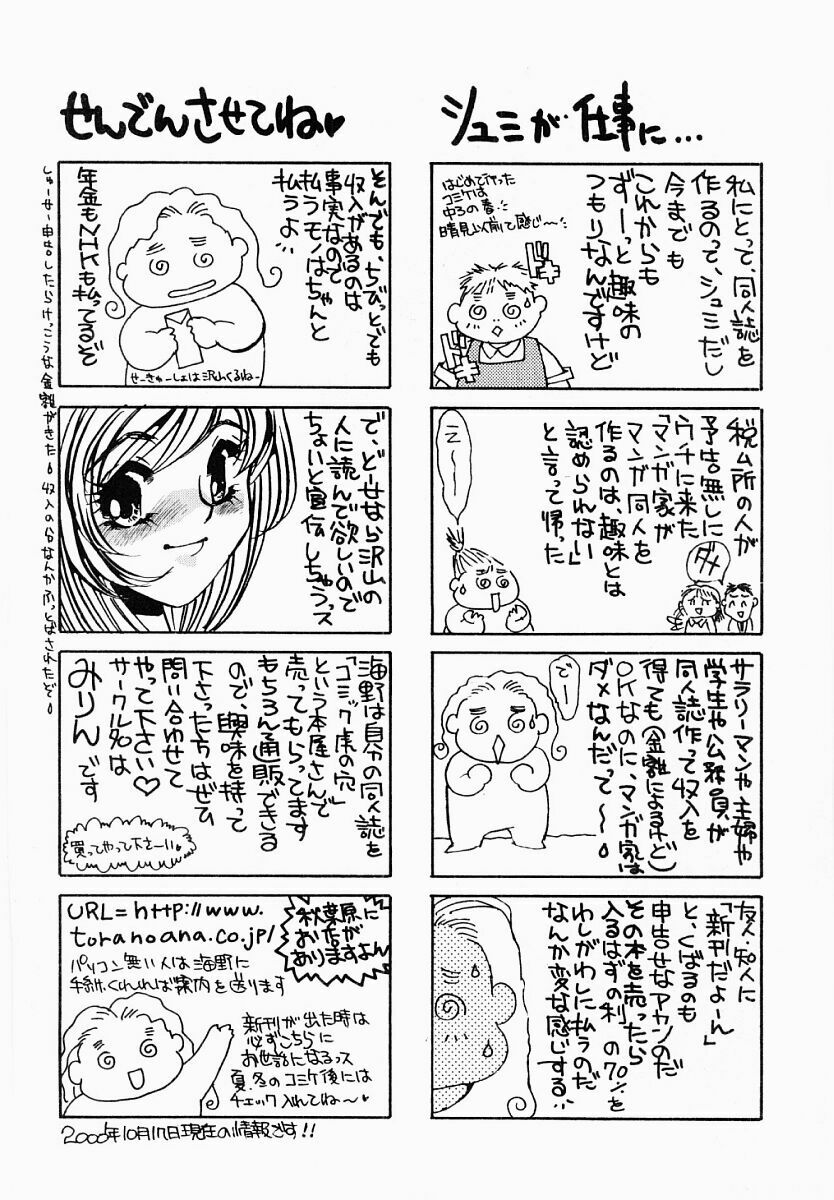 シュミが仕事に…
私にとって、同人誌を
作るのって、シュミだし
今までも
これからも
ずーっと趣味の
つもりなんですけど
はじめて行った
コミケは
中3の春
晴見以前て感じ〜
税ム所の人が
予告無しに
ウチに来た
「マンガ家が
マンガ同人を
作るのは、趣味とは
認められない」
と言って帰った
ダメ
えーー
サラリーマンや主婦や
学生や公務員が
同人誌作って収入を
得ても(金額によるけど)
OKなのに、マンガ家は
ダメなんだって〜
でー
友人・知人に
「新刊だよーん」
と、くばるのも
申告せなアカンのだ
その本を売ったら
入るはずの利 の70%を
わしがわしに払うのだ
なんか変な感じする
せんでんさせてね♥
そんでも、ちびっとでも
収入があるのは
事実なので
払うモノはちゃんと
払うよ…
年金もNHKも払ってるぞ
せーきゅーしょは沢山くるねー
しゅーせー申告したらけっこうな金額がきた 収入の分なんかふっとばされたぞ
で、ど〜せなら沢山の
人に読んで欲しいので
ちょいと宣伝しちゃうっス
海野は自分の同人誌を
「コミック虎の穴」
という本屋さんで
売ってもらってます
もちろん通販できる
ので、興味を持って
下さった方はぜひ
問い合わせて
やって下さい♡
サークル名は
みりんです
買ってやって下さーい
URL=http://www.
toranoana.co.jp/
秋葉原に
お店が
ありますよん
パソコン無い人は海野に
手紙くれれば案内を送ります
新刊が出た時は
必ずこちらに
お世話になるっス
夏、冬のコミケ後には
チェック入れてね〜♥
2000年10月17日現在の情報です!!